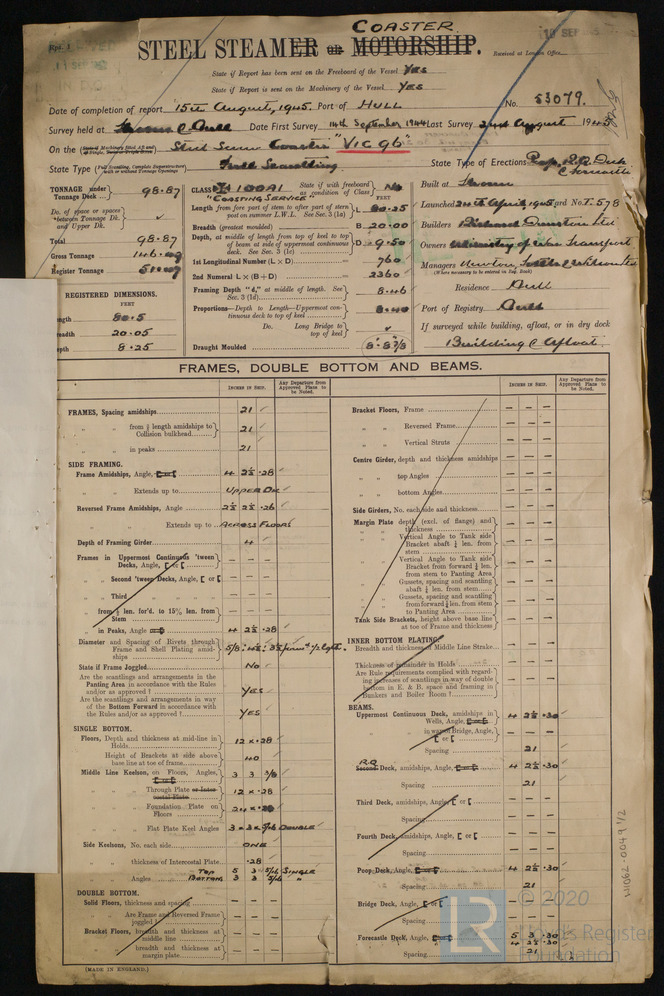 COASTER
STEEL STEAMER or MOTORSHIP.
Received at London Office
State if Report has been sent on the Freeboard of the Vessel YES
State if Report is sent on the Machinery of the Vessel YES
Date of completion of report 15th August, 1945. Port of HULL No. 53079.
Survey held at Thorne & Hull Date First Survey 14th September 1944 Last Survey 2nd August 1945
On the Steel Screw Coaster "VIC 96"
State Type Full Scantling State Type of Erections
TONNAGE under Tonnage Deck 98.87
Do. of space or spaces between Tonnage Dk. and Upper Dk.
Total 98.87
Gross Tonnage
Register Tonnage
REGISTERED DIMENSIONS.
FEET
80.5
20.05
8.25
CLASS 100A1 State if with freeboard as condition of Class No
"COASTING SERVICE"
Length from fore part of stem to after part of stern post on summer L.W.L. See Sec. 3 (1a) L 80.25
Breadth (greatest moulded) B 20.00
Depth, at middle of length from top of keel to top of beam at side of uppermost continuous deck. See Sec. 3 (1c) D 9.50
1st Longitudinal Number (L × D) 760
2nd Numeral L × (B + D) 2360
Framing Depth "d," at middle of length. See Sec. 3 (1d) 8.46
Proportions—Depth to Length—Uppermost continuous deck to top of keel 8.40
Do. Long Bridge to top of keel
Draught Moulded
Built at Thorne
Launched 24th April, 1945 Yard No. T.578
Builders Richard Dunston Ltd
Owners Ministry of War Transport
Managers
(Where necessary to be entered in Reg. Book)
Residence Hull
Port of Registry Hull
If surveyed while building, afloat, or in dry dock
Building & Afloat.
FRAMES, DOUBLE BOTTOM AND BEAMS.
INCHES IN SHIP. Any Departure from Approved Plans to be Noted.
INCHES IN SHIP. Any Departure from Approved Plans to be Noted.
FRAMES, Spacing amidships 21
" " from ⅕ length amidships to Collision bulkhead 21
" " in peaks 21
SIDE FRAMING.
Frame Amidships, Angle, 4 2½ .28
" " Extends up to UPPER DK
Reversed Frame Amidships, Angle 2½ 2½ .26
" " Extends up to ACROSS FLOORS
Depth of Framing Girder 4
Frames in Uppermost Continuous 'tween Decks, Angle, [ or [
" Second 'tween Decks, Angle, [ or [
" Third " " "
" from ⅕ len. for'd. to 15% len. from Stem
" in Peaks, Angle 4 2½ .28
Diameter and Spacing of Rivets through Frame and Shell Plating amidships
State if Frame Joggled No
Are the scantlings and arrangements in the Panting Area in accordance with the Rules and/or as approved ? YES
Are the scantlings and arrangements in way of the Bottom Forward in accordance with the Rules and/or as approved ? YES
SINGLE BOTTOM.
Floors, Depth and thickness at mid-line in Holds 12 × .28
Height of Brackets at side above base line at toe of frame 40
Middle Line Keelson, on Floors, Angles, 3 3 3/8
" " Through Plate or Intercostal Plate 12 × .28
" " Foundation Plate on Floors
" " Flat Plate Keel Angles DOUBLE
Side Keelsons, No. each side ONE
" " thickness of Intercostal Plate .28
" " Angles TOP 5 3 5/16 SINGLE
BOTTOM 3 3 5/16 "
DOUBLE BOTTOM.
Solid Floors, thickness and spacing
" " Are Frame and Reversed Frame joggled
Bracket Floors, breadth and thickness at middle line
" " breadth and thickness at margin plate
(MADE IN ENGLAND.)
Bracket Floors, Frame
" " Reversed Frame
" " Vertical Struts
Centre Girder, depth and thickness amidships
" " top Angles
" " bottom Angles
Side Girders, No. each side and thickness
Margin Plate depth (excl. of flange) and thickness
" " Vertical Angle to Tank side Bracket abaft ¼ len. from stem
" " Vertical Angle to Tank side Bracket from forward ¼ len. from stem to Panting Area
" " Gussets, spacing and scantling abaft ¼ len. from stem
" " Gussets, spacing and scantling from forward ¼ len. from stem to Panting Area
Tank Side Brackets, height above base line at toe of Frame and thickness
INNER BOTTOM PLATING.
Breadth and thickness of Middle Line Strake
Thickness of remainder in Holds
Are Rule requirements complied with regarding increases of scantlings in way of double bottom in E. & B. space and framing in Bunkers and Boiler Room ?
BEAMS.
Uppermost Continuous Deck, amidships in Wells, Angle, 4 2½ .30
" " in way of Bridge, Angle, [ or [
Spacing 21
R.Q.
Second Deck, amidships, Angle, 4 2½ .30
Spacing 21
Third Deck, amidships, Angle, [ or [
Spacing
Fourth Deck, amidships, Angle, [ or [
Spacing
Poop Deck, Angle, 4 2½ .30
Spacing 21
Bridge Deck, Angle, [ or [
Spacing
Forecastle Deck, Angle, 5 3 .30
4 2½ .30
Spacing 21
LR
© 2020
Lloyd's Register
Foundation